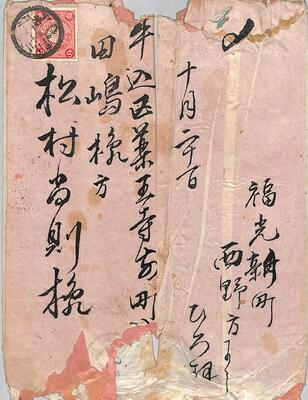 牛込区薬王寺前町
田嶋様方
松村尚則様
十月二十日
福光新町
西野方より